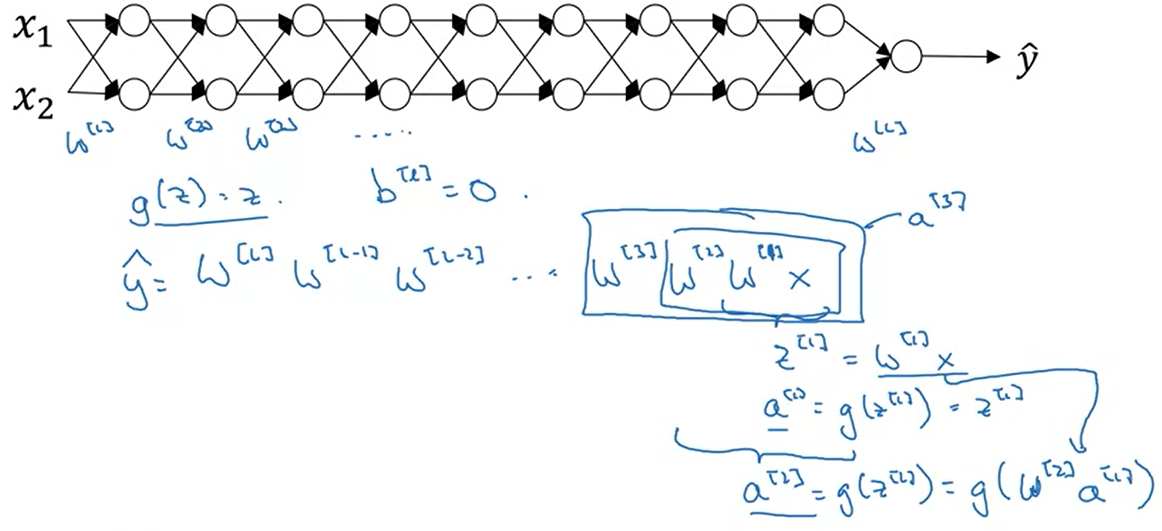 x₁
x₂
ŷ
w^[1] w^[2] w^[3] ..... w^[L]
g(z) = z. b^[l] = 0.
a^[3]
ŷ = w^[L] w^[L-1] w^[L-2] ... w^[3] w^[2] w^[1] x
z^[1] = w^[1] x
a^[1] = g(z^[1]) = z^[1]
a^[2] = g(z^[2]) = g(w^[2] a^[1])